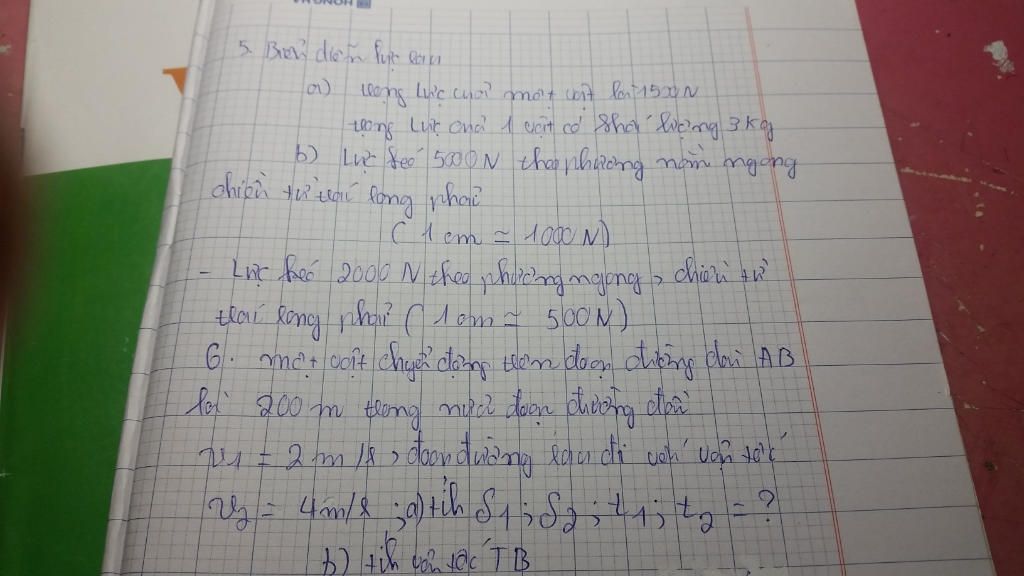 5. Biểu diễn lực sau
a) trọng lực của một vật là 1500N
trọng lực của 1 vật có khối lượng 3 Kg
b) Lực kéo 5000 N theo phương nằm ngang
chiều từ trái sang phải
( 1 cm = 1000 N)
- Lực kéo 2000 N theo phương ngang, chiều từ
trái sang phải ( 1 cm = 500 N)
6. một vật chuyển động trên đoạn đường dài AB
là 200 m trong nửa đoạn đường đầu
v1 = 2 m/s, đoạn đường sau đi với vận tốc
v2 = 4m/s ; a) tíh S1 ; S2 ; t1 ; t2 = ?
b) tíh vận tốc TB